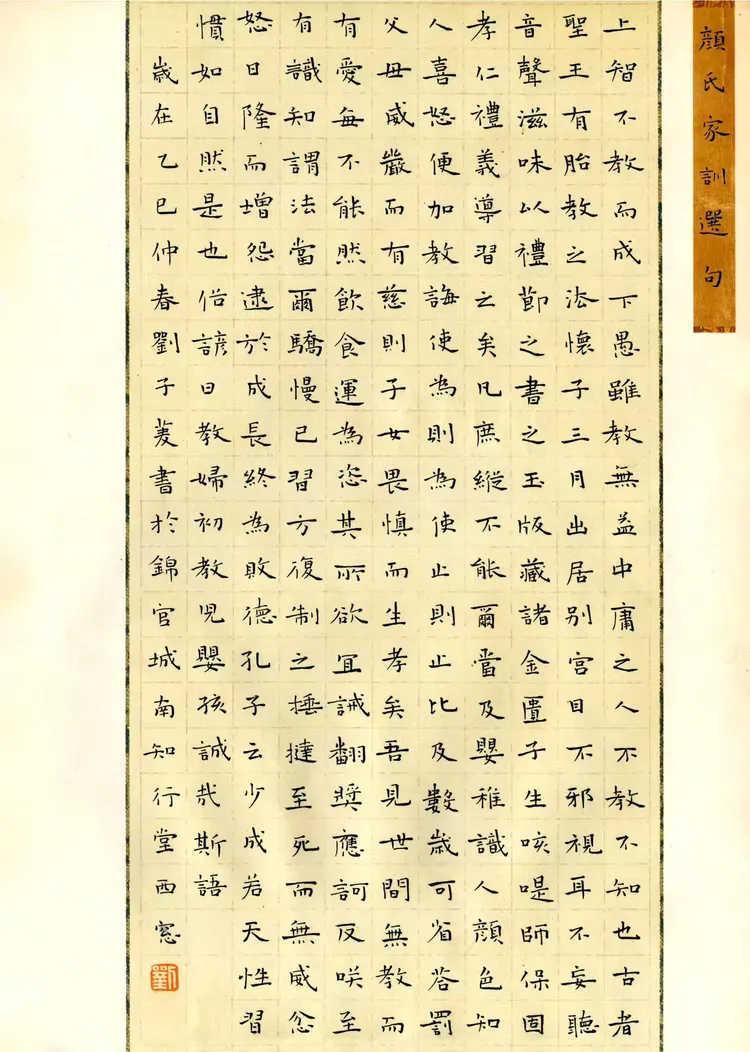 顏氏家訓選句
上智不教而成下愚雖教無益中庸之人不教不知也古者
聖王有胎教之法懷子三月出居別宮目不邪視耳不妄聽
音聲滋味以禮節之書之玉版藏諸金匱子生咳㖷師保固
孝仁禮義導習之矣凡庶縱不能爾當及嬰稚識人顏色知
人喜怒便加教誨使為則為使止則止比及數歲可省笞罰
父母威嚴而有慈則子女畏慎而生孝矣吾見世間無教而
有愛每不能然飲食運為恣其所欲宜誡翻獎應訶反咲至
有識知謂法當爾驕慢已習方復制之捶撻至死而無威忿
怒日隆而增怨逮於成長終為敗德孔子云少成若天性習
慣如自然是也俗諺曰教婦初教兒嬰孩誠哉斯語
歲在乙巳仲春劉子菱書於錦官城南知行堂西窓
劉